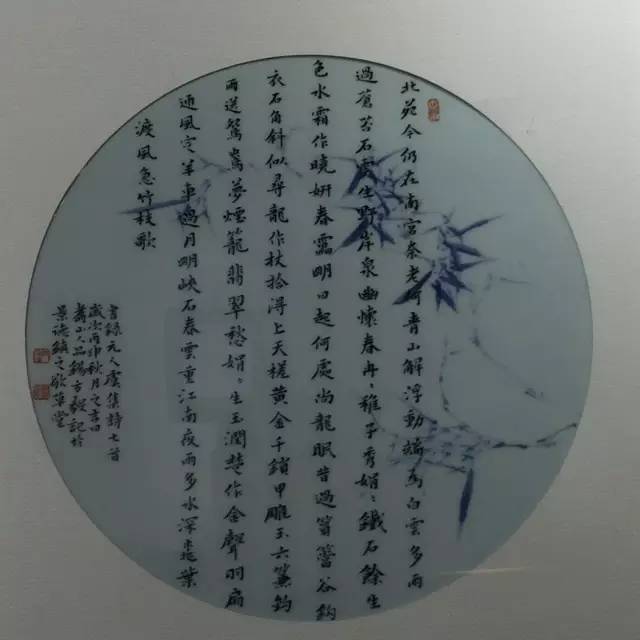 北苑今仍在南宫奈老何青山解浮動端為白雲多雨
過蒼苔石雲生野岸泉幽懷春冉、稚子秀娟、鐵石餘生
色水霜作曉妍春雷明日起何處尚龍眠昔過篔簹谷鈎
衣石角斜似尋龍作杖拾得上天槎黄金千鎖甲雕玉六簾鈎
雨送鴛鴦夢煙籠翡翠愁娟、生玉潤楚、作金聲羽扇
迎風定羊車過月明峽石春雲重江南夜雨多水深悲葉
渡風急竹枝歌
書錄元人虞集詩七首
歲次丙申秋月
方毅記於
景德鎮之草堂